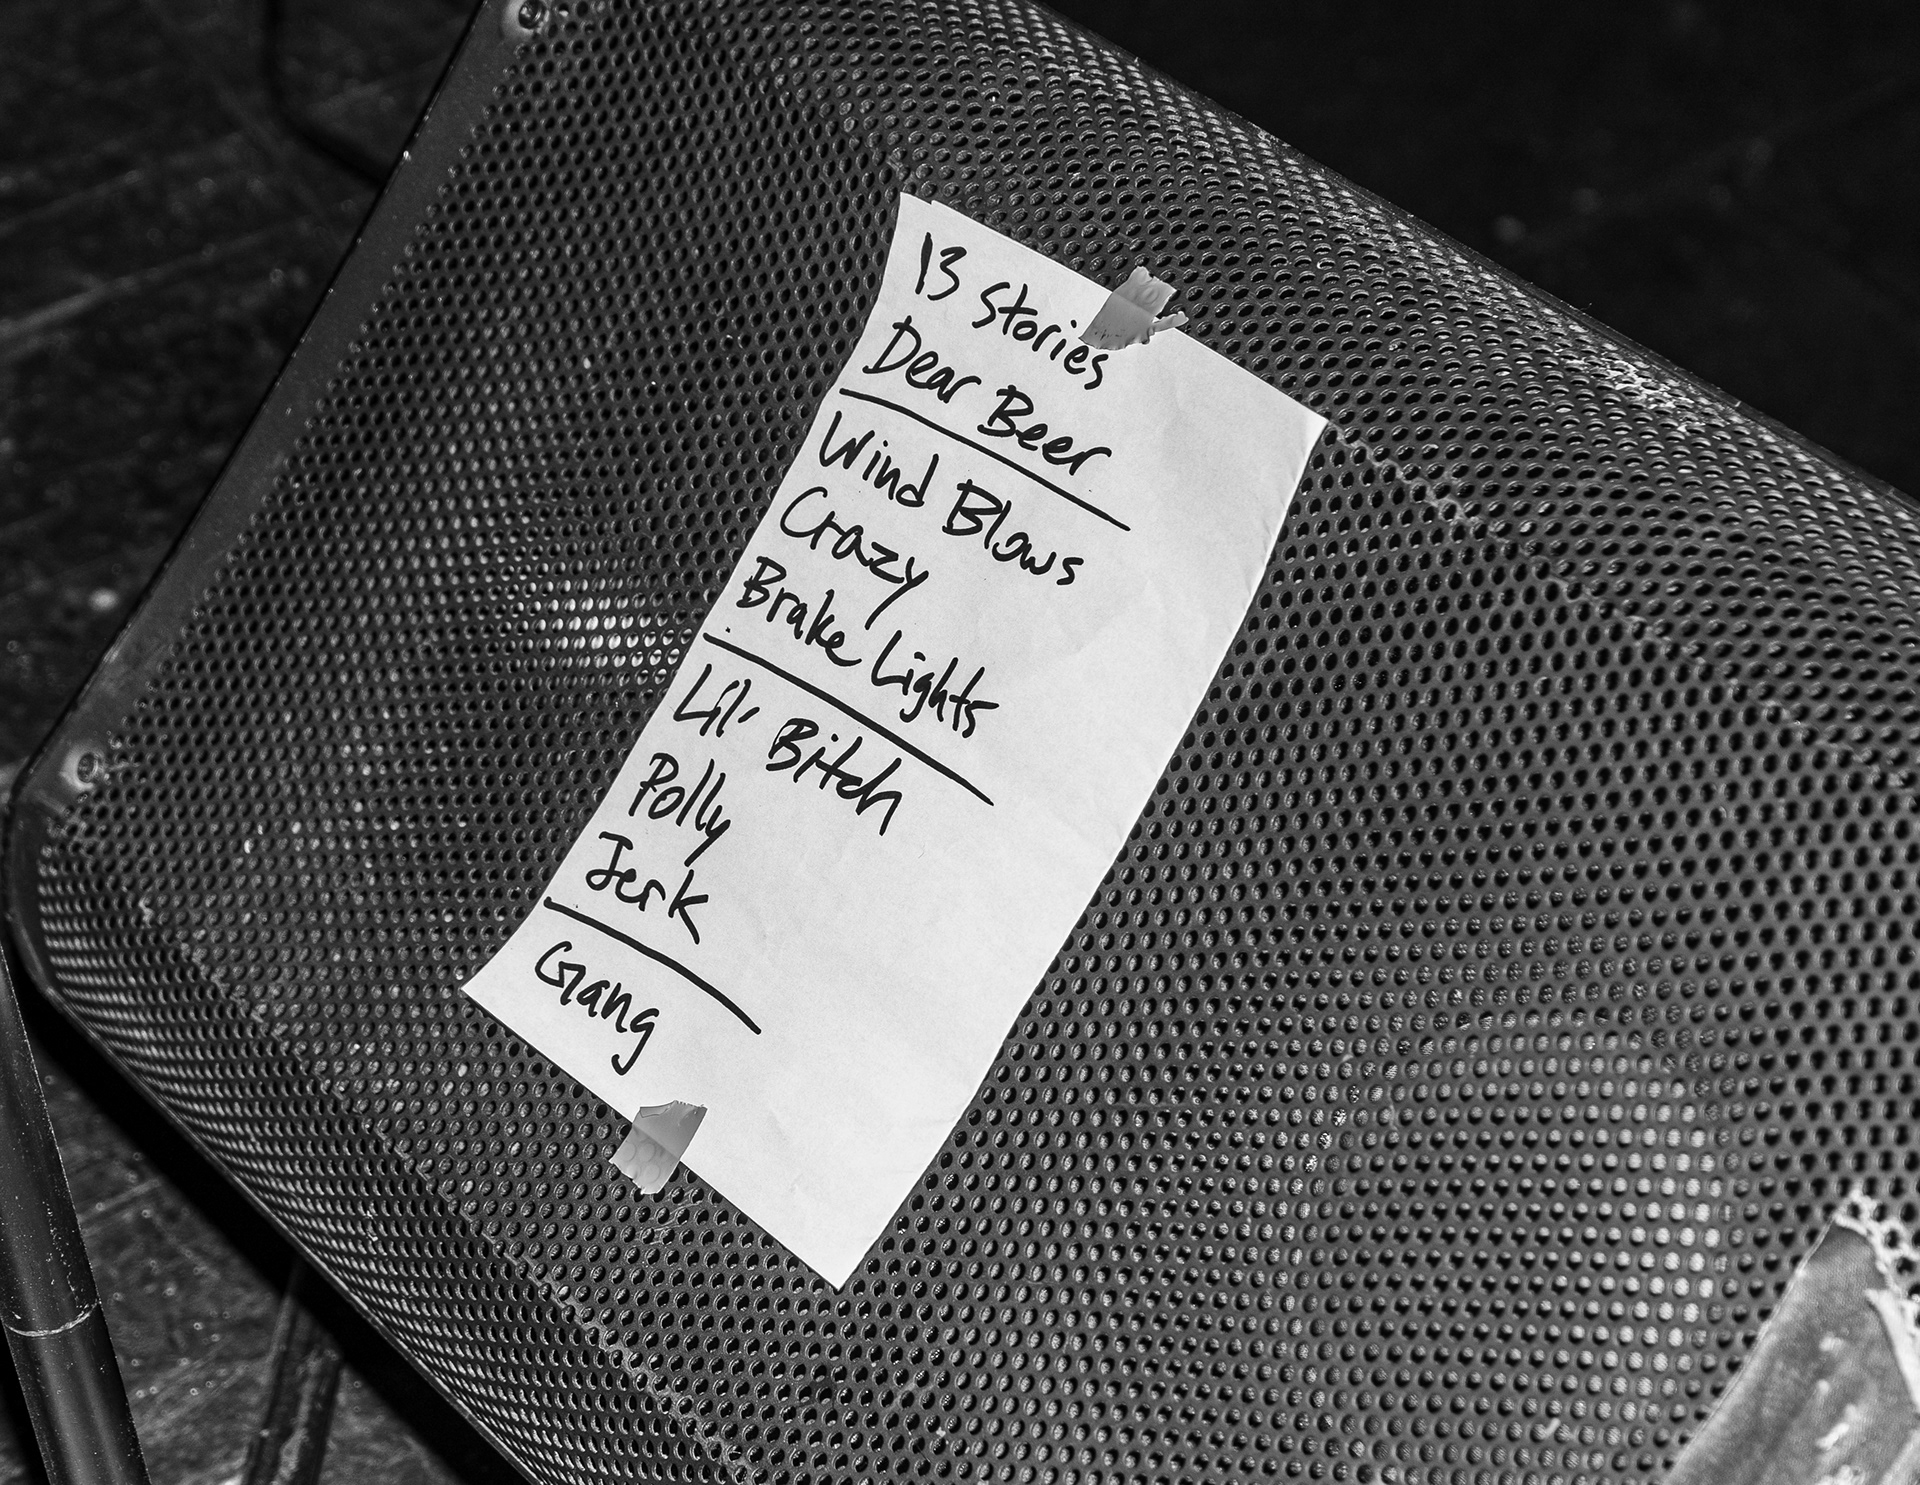 13 Stories
Dear Beer
Wind Blows
Crazy
Brake Lights
Lil' Bitch
Polly
Jerk
Gang